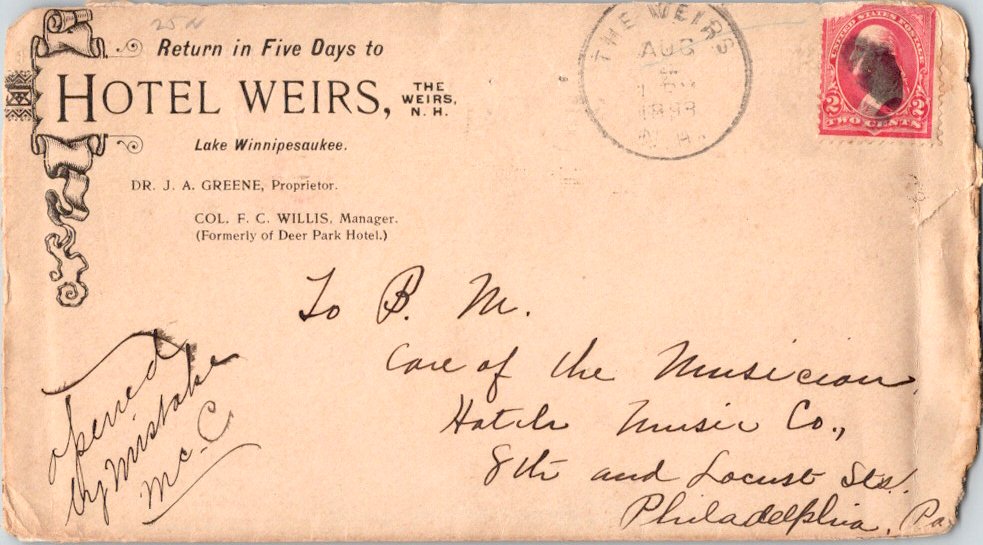 25 N
Return in Five Days to
HOTEL WEIRS, THE WEIRS, N. H.
Lake Winnipesaukee.
DR. J. A. GREENE, Proprietor.
COL. F. C. WILLIS, Manager.
(Formerly of Deer Park Hotel.)
THE WEIRS
AUG
N. H.
UNITED STATES POSTAGE
2 2
TWO CENTS
To B. M.
Care of the Musician,
Hatch Music Co.,
8th and Locust Sts.
Philadelphia, Pa
opened
by mistake
Mc. C.